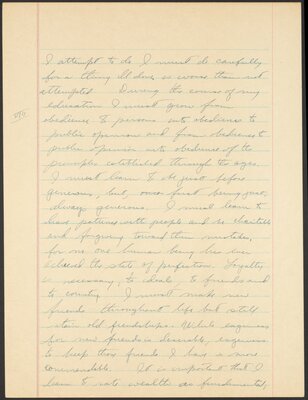 I attempt to do I must do carefully
for a thing ill done, is worse than not
attempted. During the course of my
education I must grow from
obedience to persons into obedience to
public opinion and from obedience to
public opinion into obedience of the
principles established through the ages.
I must learn to be just before
generous, but, once first being just,
always generous. I must learn to
have patience with people and be charitable
and forgiving toward their mistakes,
for no one human being has ever
achieved the state of perfection. Loyalty
is necessary, to ideals, to friends and
to country. I must make new
friends throughout life but still
retain old friendships. While eagerness
for new friends is desirable, eagerness
to keep those friends I have is more
commendable. It is important that I
learn to rate wealth as fundamental